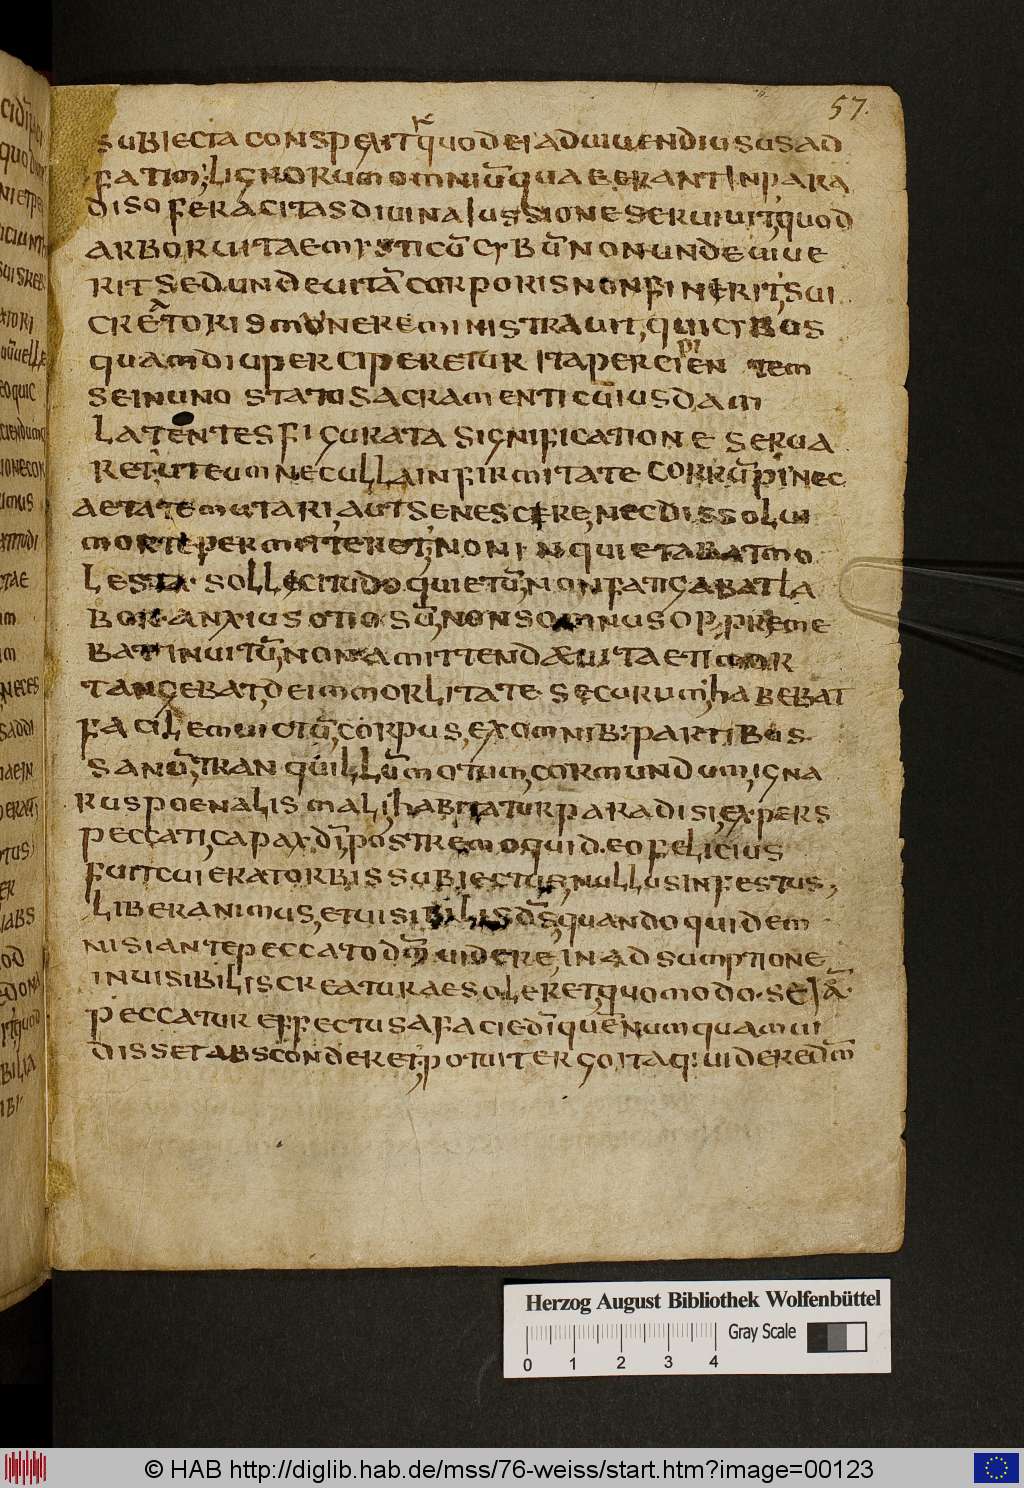 57.
subiecta conspexit quod ei ad uiuendi usus ad
fatim lignorum omniū quae erant in para
diso feracitas diuina iussione seruiuit, quod
arbor uitae mysticū cybū non unde uiue
rit sed unde uitā corporis non finerit, sui
creatoris munere ministrauit, qui cybus
quamdiu perciperetur ita percipientem
se in uno statu sacramenti cuiusdam
latentes figurata significatione serua
ret, ut eum nec ulla infirmitate corrūpi nec
aetate mutari, aut senescere, nec dissolui
morte permitteret, non inquietabat mo
lesta sollicitudo quietū, non fatigabat la
bor anxius otiosū, non somnus oppreme
bat inuitū, non amittendae uitae timor
tangebat, de immorlitate securum, habebat
facilem uictū, corpus, ex omnib: partibus
sanū, tranquillū motum, cor mundum, igna
rus poenalis mali, habitatur paradisi, expers
peccati, capax dī, postremo quid eo felicius
fuit cui erat orbis subiectus, nullus infestus,
liber animus, et uisibilis dS, quando quidem
nisi ante peccato dm̄ uidere, in adsumptione
inuisibilis creaturae soleret, quomodo se iā
peccatur effectus a facie dī quē numquam ui
disset absconderet, potuit ergo itaq: uidere dm̄
Herzog August Bibliothek Wolfenbüttel
Gray Scale
0 1 2 3 4
© HAB http://diglib.hab.de/mss/76-weiss/start.htm?image=00123